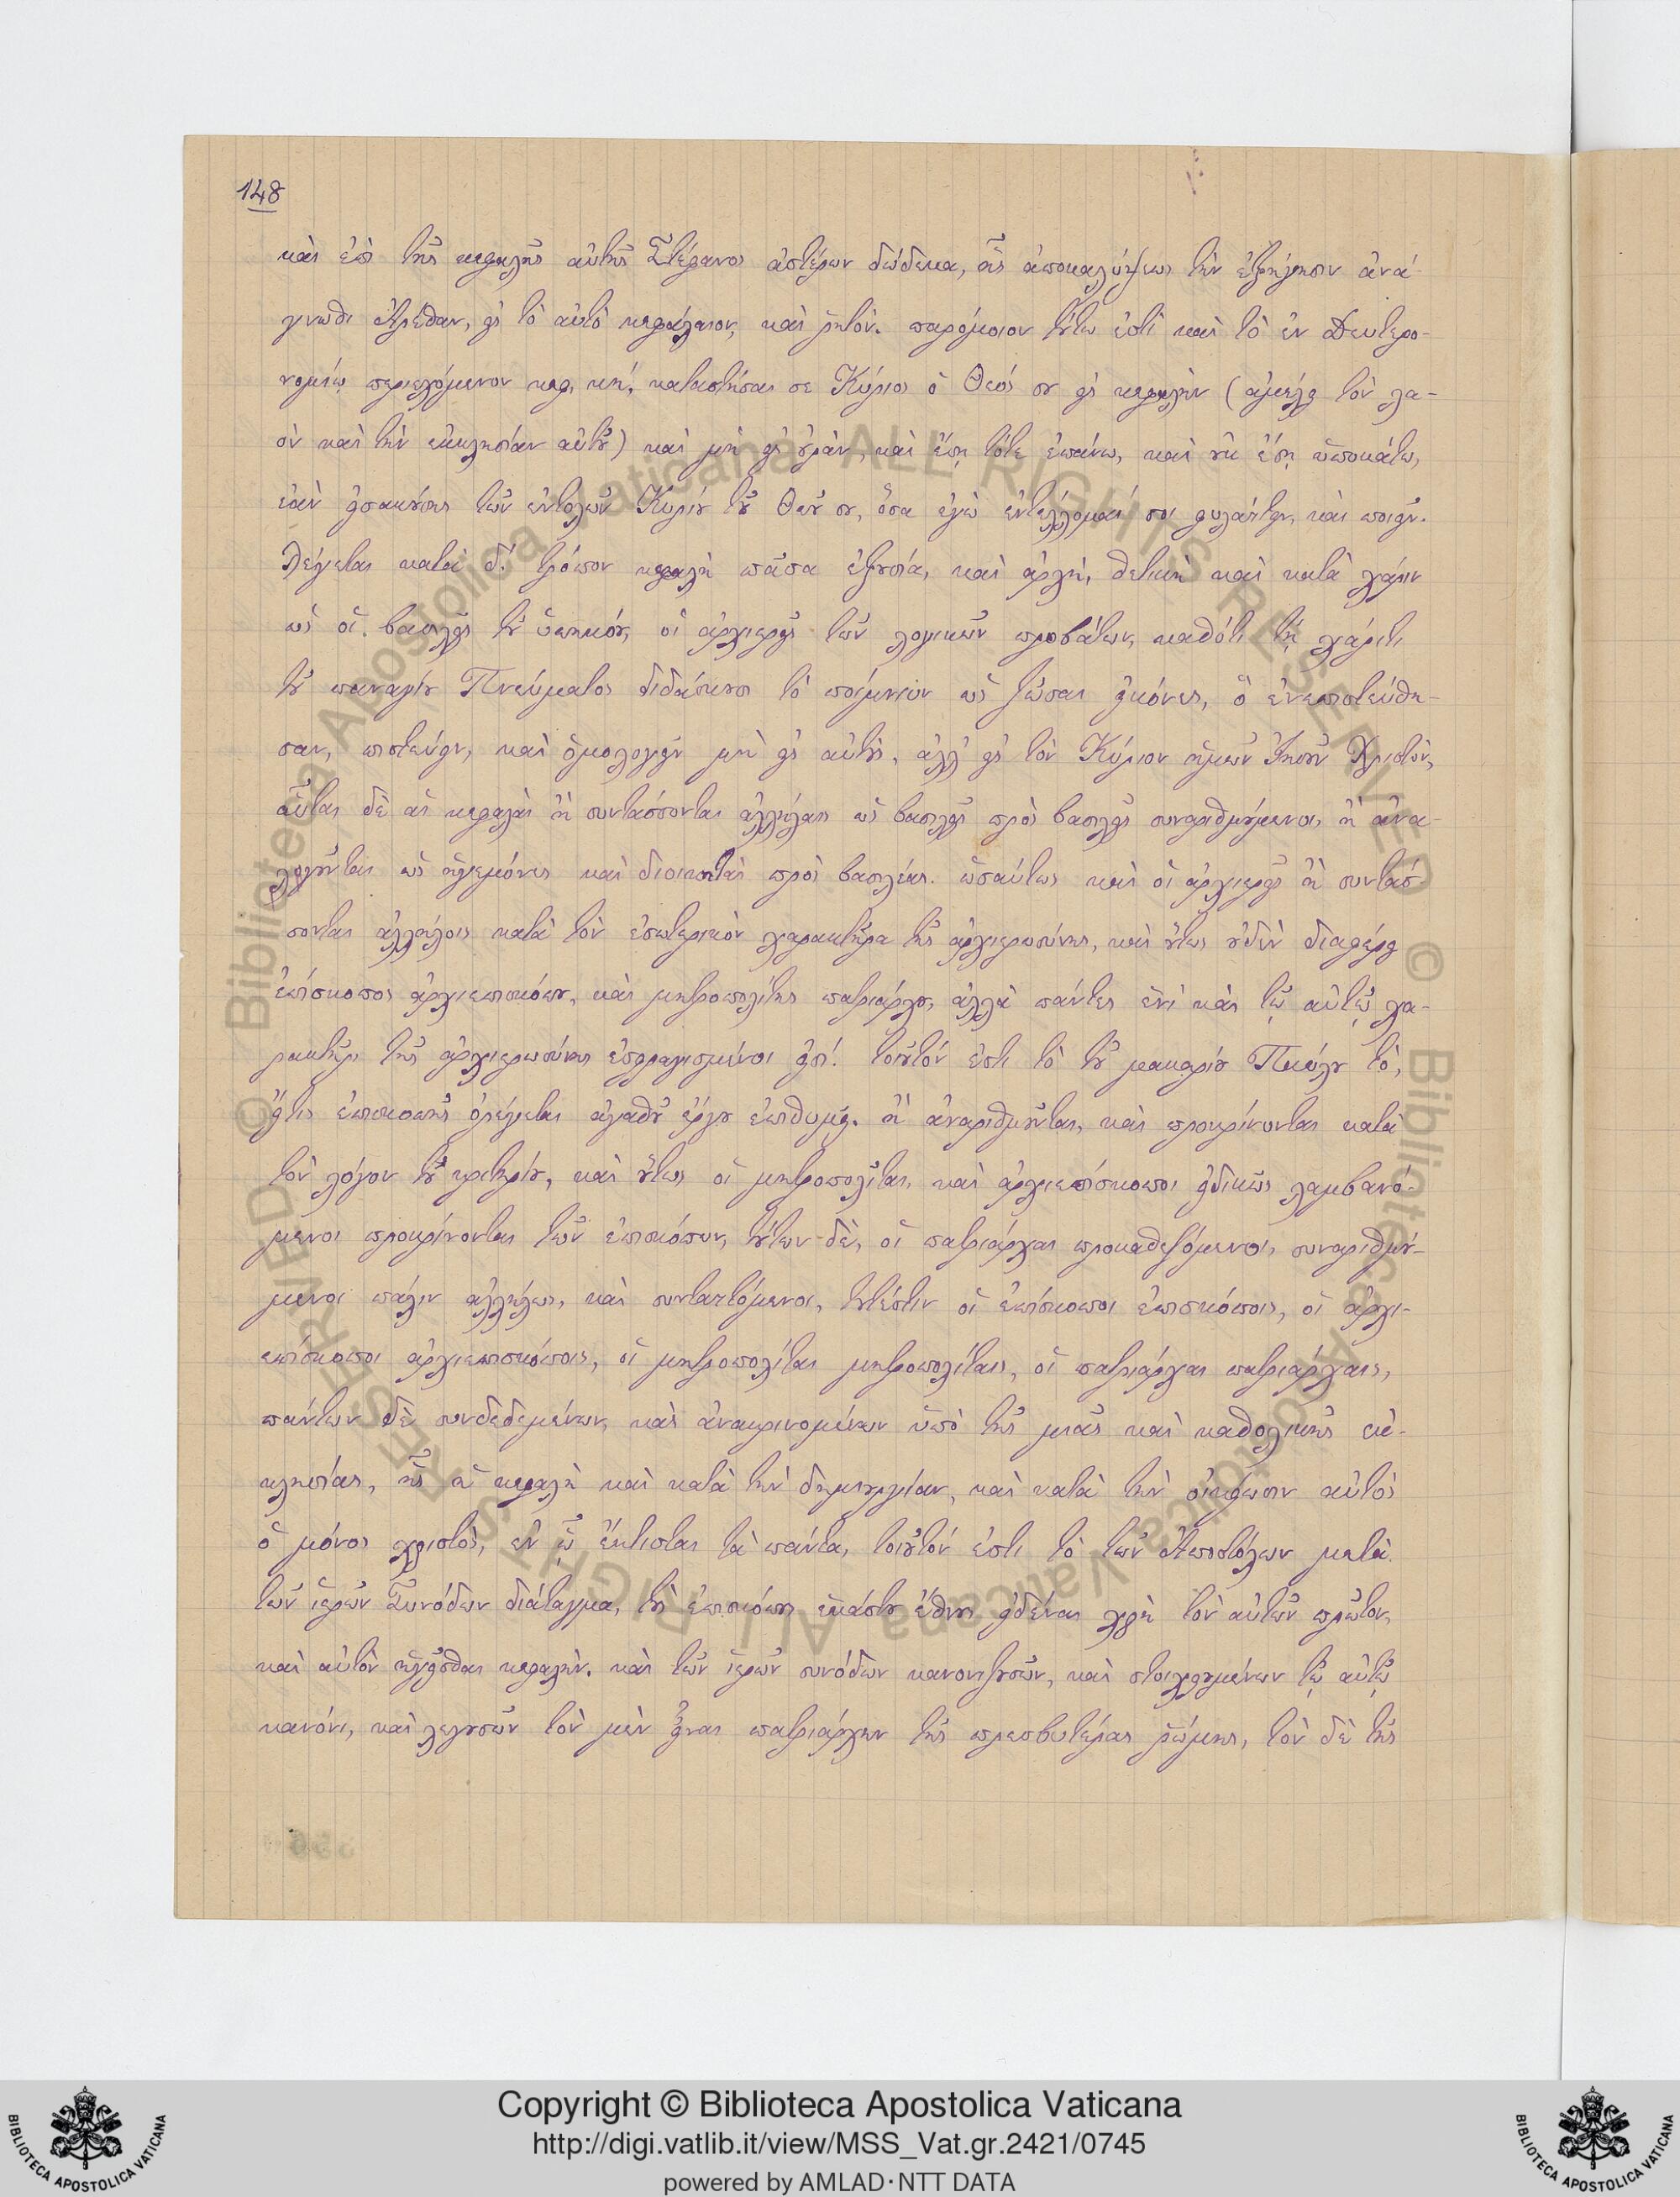 148
καὶ ἐπὶ τῆς κεφαλῆς αὐτῆς Στέφανος ἀστέρων δώδεκα, ἧς ἀποκαλύψεως τὴν ἐξήγησιν ἀνά-
γνωθι Ἀρέθαν, εἰς τὸ αὐτὸ κεφάλαιον, καὶ ῥητόν. παρόμοιον τούτῳ ἐστὶ καὶ τὸ ἐν Δευτερο-
νομίῳ περιεχόμενον κεφ. κη΄. καταστήσαι σε Κύριος ὁ Θεός σου εἰς κεφαλὴν (ἀμέλει τὸν λα-
ὸν καὶ τὴν ἐκκλησίαν αὐτοῦ) καὶ μὴ εἰς οὐράν, καὶ ἔσῃ τότε ἐπάνω, καὶ οὐκ ἔσῃ ὑποκάτω,
ἐὰν εἰσακούσῃς τῶν ἐντολῶν Κυρίου τοῦ Θεοῦ σου, ὅσα ἐγὼ ἐντέλλομαί σοι φυλάττειν, καὶ ποιεῖν.
Λέγεται κατὰ δ΄. τρόπον κεφαλὴ πᾶσα ἐξουσία, καὶ ἀρχή, θετικὴ καὶ κατὰ χάριν
ὡς οἱ βασιλεῖς τοῦ ὑπηκόου, οἱ ἀρχιερεῖς τῶν λογικῶν προβάτων, καθότι τῇ χάριτι
τοῦ παναγίου Πνεύματος διδάσκουσι τὸ ποίμνιον ὡς ζῶσαι εἰκόνες, ὃ ἐνεπιστεύθη-
σαν, πιστεύειν, καὶ ὁμολογεῖν μὴ εἰς αὐτούς, ἀλλ' εἰς τὸν Κύριον ἡμῶν Ἰησοῦν Χριστόν,
αὗται δὲ αἱ κεφαλαὶ ἢ συντάσσονται ἀλλήλαις ὡς βασιλεῖς πρὸς βασιλεῖς συναριθμούμενοι, ἢ ἀνα-
λογοῦνται ὡς ἡγεμόνες καὶ διοικηταὶ πρὸς βασιλέας. ὡσαύτως καὶ οἱ ἀρχιερεῖς ἢ συντάσ-
σονται ἀλλήλοις κατὰ τὸν ἐσωτερικὸν χαρακτῆρα τῆς ἀρχιερωσύνης, καὶ οὕτως οὐδὲν διαφέρει
ἐπίσκοπος ἀρχιεπισκόπου, καὶ μητροπολίτης πατριάρχου, ἀλλὰ πάντες ἑνὶ καὶ τῷ αὐτῷ χα-
ρακτῆρι τῆς ἀρχιερωσύνης ἐσφραγισμένοι εἰσί. τοιοῦτόν ἐστι τὸ τοῦ μακαρίου Παύλου τό,
εἴτις ἐπισκοπῆς ὀρέγεται ἀγαθοῦ ἔργου ἐπιθυμεῖ. ἢ ἀναριθμοῦνται, καὶ προκρίνονται κατὰ
τὸν λόγον τοῦ κριτηρίου, καὶ οὕτως οἱ μητροπολῖται, καὶ ἀρχιεπίσκοποι εἰδικῶς λαμβανό-
μενοι προκρίνονται τῶν ἐπισκόπων, τούτων δὲ, οἱ πατριάρχαι προκαθεζόμενοι, συναριθμού-
μενοι πάλιν ἀλλήλοις, καὶ συνταττόμενοι, τουτέστιν οἱ ἐπίσκοποι ἐπισκόποις, οἱ ἀρχι-
επίσκοποι ἀρχιεπισκόποις, οἱ μητροπολῖται μητροπολίταις, οἱ πατριάρχαι πατριάρχαις,
πάντων δὲ συνδεδεμένων, καὶ ἀνακρινομένων ὑπὸ τῆς μιᾶς καὶ καθολικῆς ἐκ-
κλησίας, ἧς ἡ κεφαλὴ καὶ κατὰ τὴν δημιουργίαν, καὶ κατὰ τὴν οἰκείωσιν αὐτὸς
ὁ μόνος χριστός, ἐν ᾧ ἔκτισται τὰ πάντα, τοιοῦτόν ἐστι τὸ τῶν Ἀποστόλων μετὰ
τῶν ἱερῶν Συνόδων διάταγμα, τοὺς ἐπισκόπους ἑκάστου ἔθνους εἰδέναι χρὴ τὸν αὐτῶν πρῶτον,
καὶ αὐτὸν ἡγεῖσθαι κεφαλήν. καὶ τῶν ἱερῶν συνόδων κανονιζουσῶν, καὶ στοιχουμένων τῷ αὐτῷ
κανόνι, καὶ λεγουσῶν τὸν μὲν εἶναι πατριάρχην τῆς πρεσβυτέρας ῥώμης, τὸν δὲ τῆς
Copyright © Biblioteca Apostolica Vaticana
http://digi.vatlib.it/view/MSS_Vat.gr.2421/0745
powered by AMLAD·NTT DATA